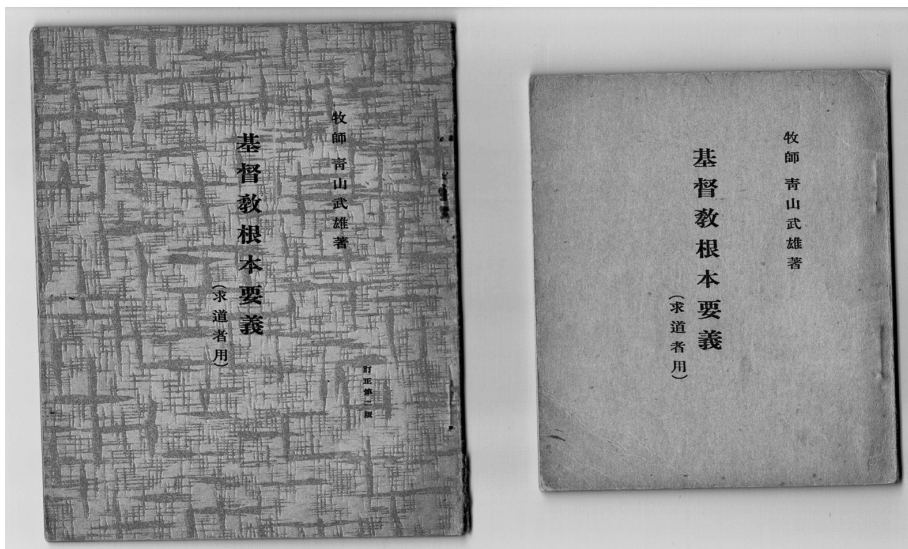 牧師 靑山武雄著
基督敎根本要義
(求道者用)
訂正第二版
牧師 靑山武雄著
基督敎根本要義
(求道者用)